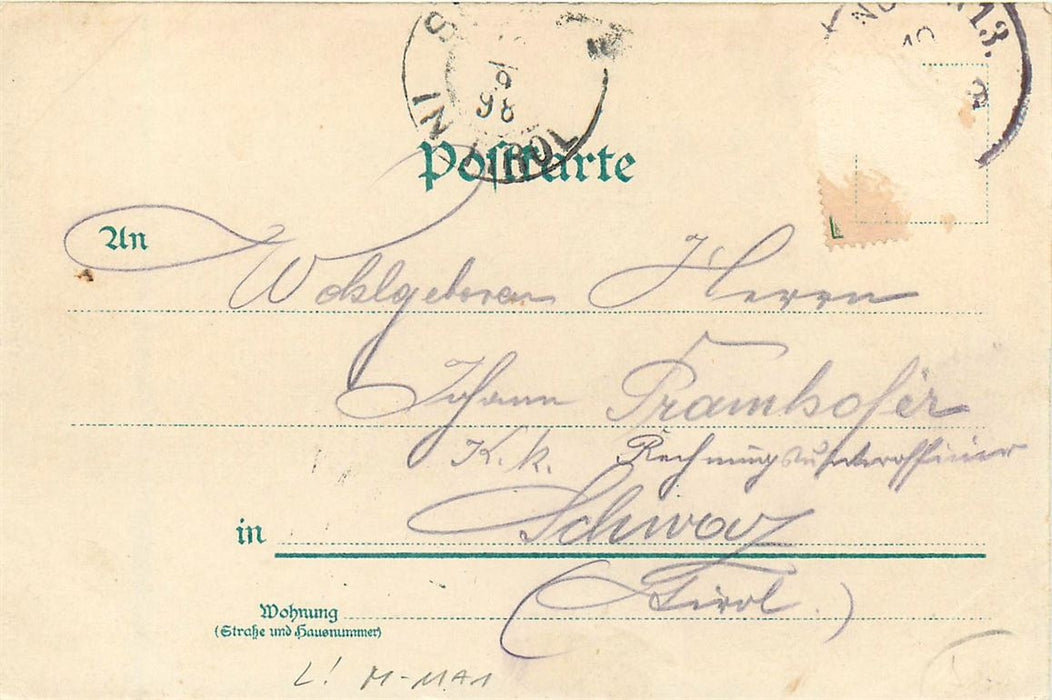 NÜ 13.
S
9
98
IN TIROL
Postkarte
An
Wohlgeboren Herrn
Johann Tramhofer
K. k. Rechnungsunteroffizier
in Schwaz
(Tirol.)
Wohnung
(Straße und Hausnummer)
L! M-MA1